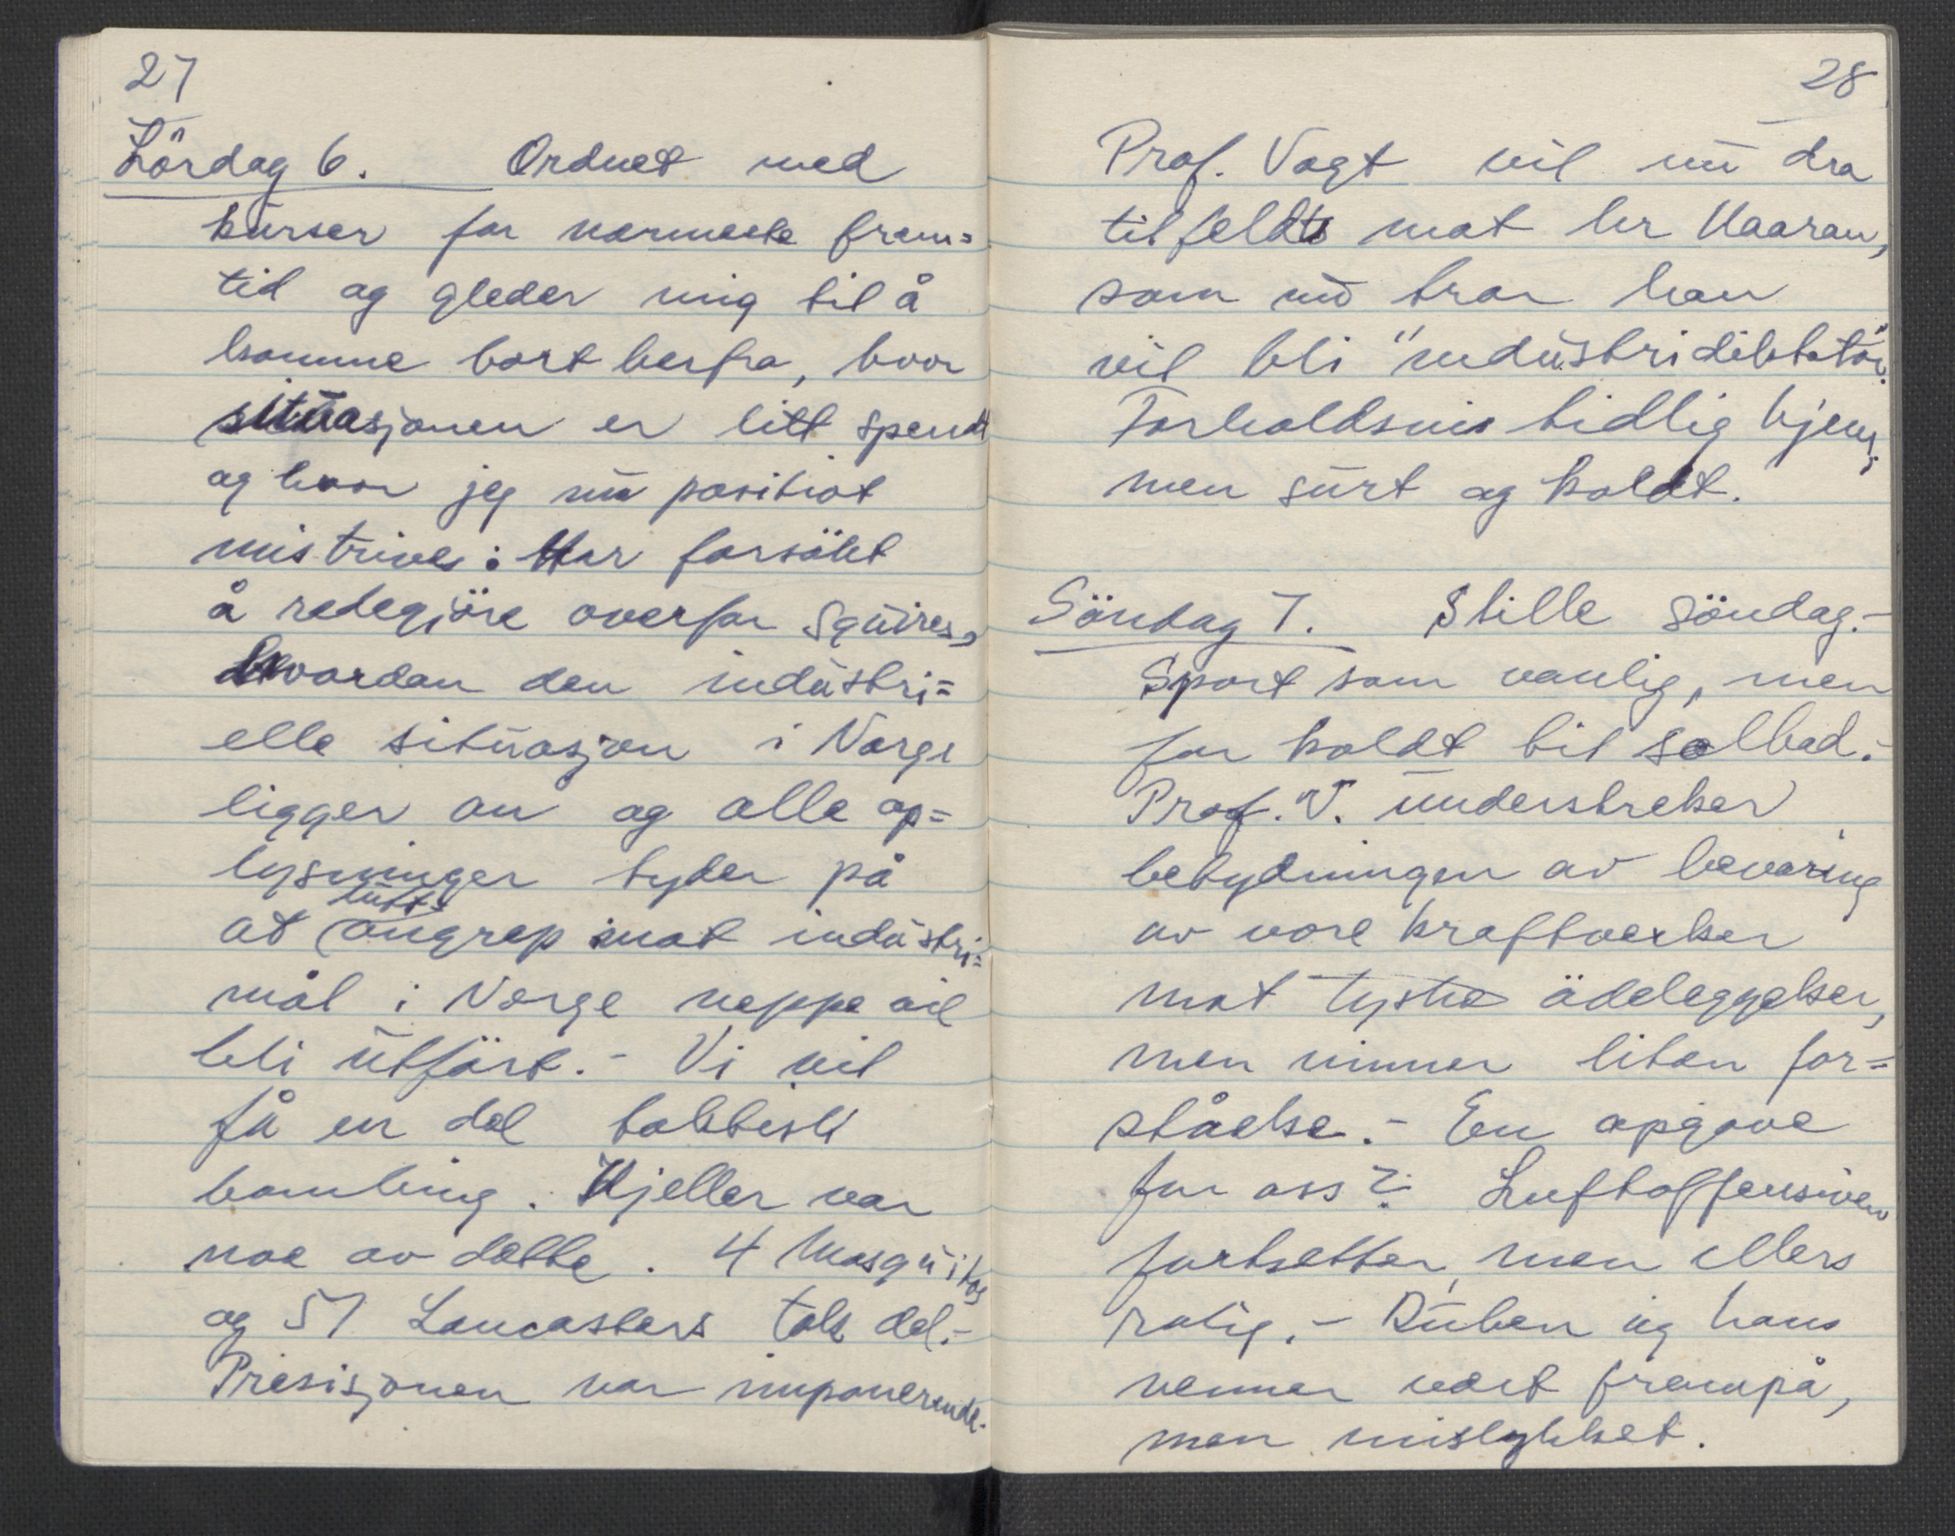 27
Lördag 6. Ordnet med
kurser for nærmeste frem=
tid og gleder mig til å
komme bort herfra, hvor
situasjonen er litt spendt
og hvor jeg nu positivt
mistrives. Har forsökt
å redegjöre overfor Squires,
hvordan den industri=
elle situasjon i Norge
ligger an og alle op=
lysninger tyder på
at luft=angrep mot industri=
mål i Norge neppe vil
bli utfört. - Vi vil
få en del taktisk
bombing. Kjeller var
noe av dette. 4 Mosquitos
og 51 Lancasters tok del. -
Presisjonen var imponerende.
28
Prof. Vogt vil nu dra
tilfelds mot hr Haaran,
som nu tror han
vil bli "industridiktatör".
Forholdsvis tidlig hjem,
men surt og koldt.
Söndag 7. Stille söndag. -
Sport som vanlig, men
for koldt til solbad. -
Prof. V. understreker
betydningen av bevaring
av vore kraftverker
mot tyske ödeleggelser,
men vinner liten for=
ståelse. - En opgave
for oss? Luftoffensiven
fortsetter, men ellers
rolig. - Ruben og hans
venner vært frempå,
men mislykket.